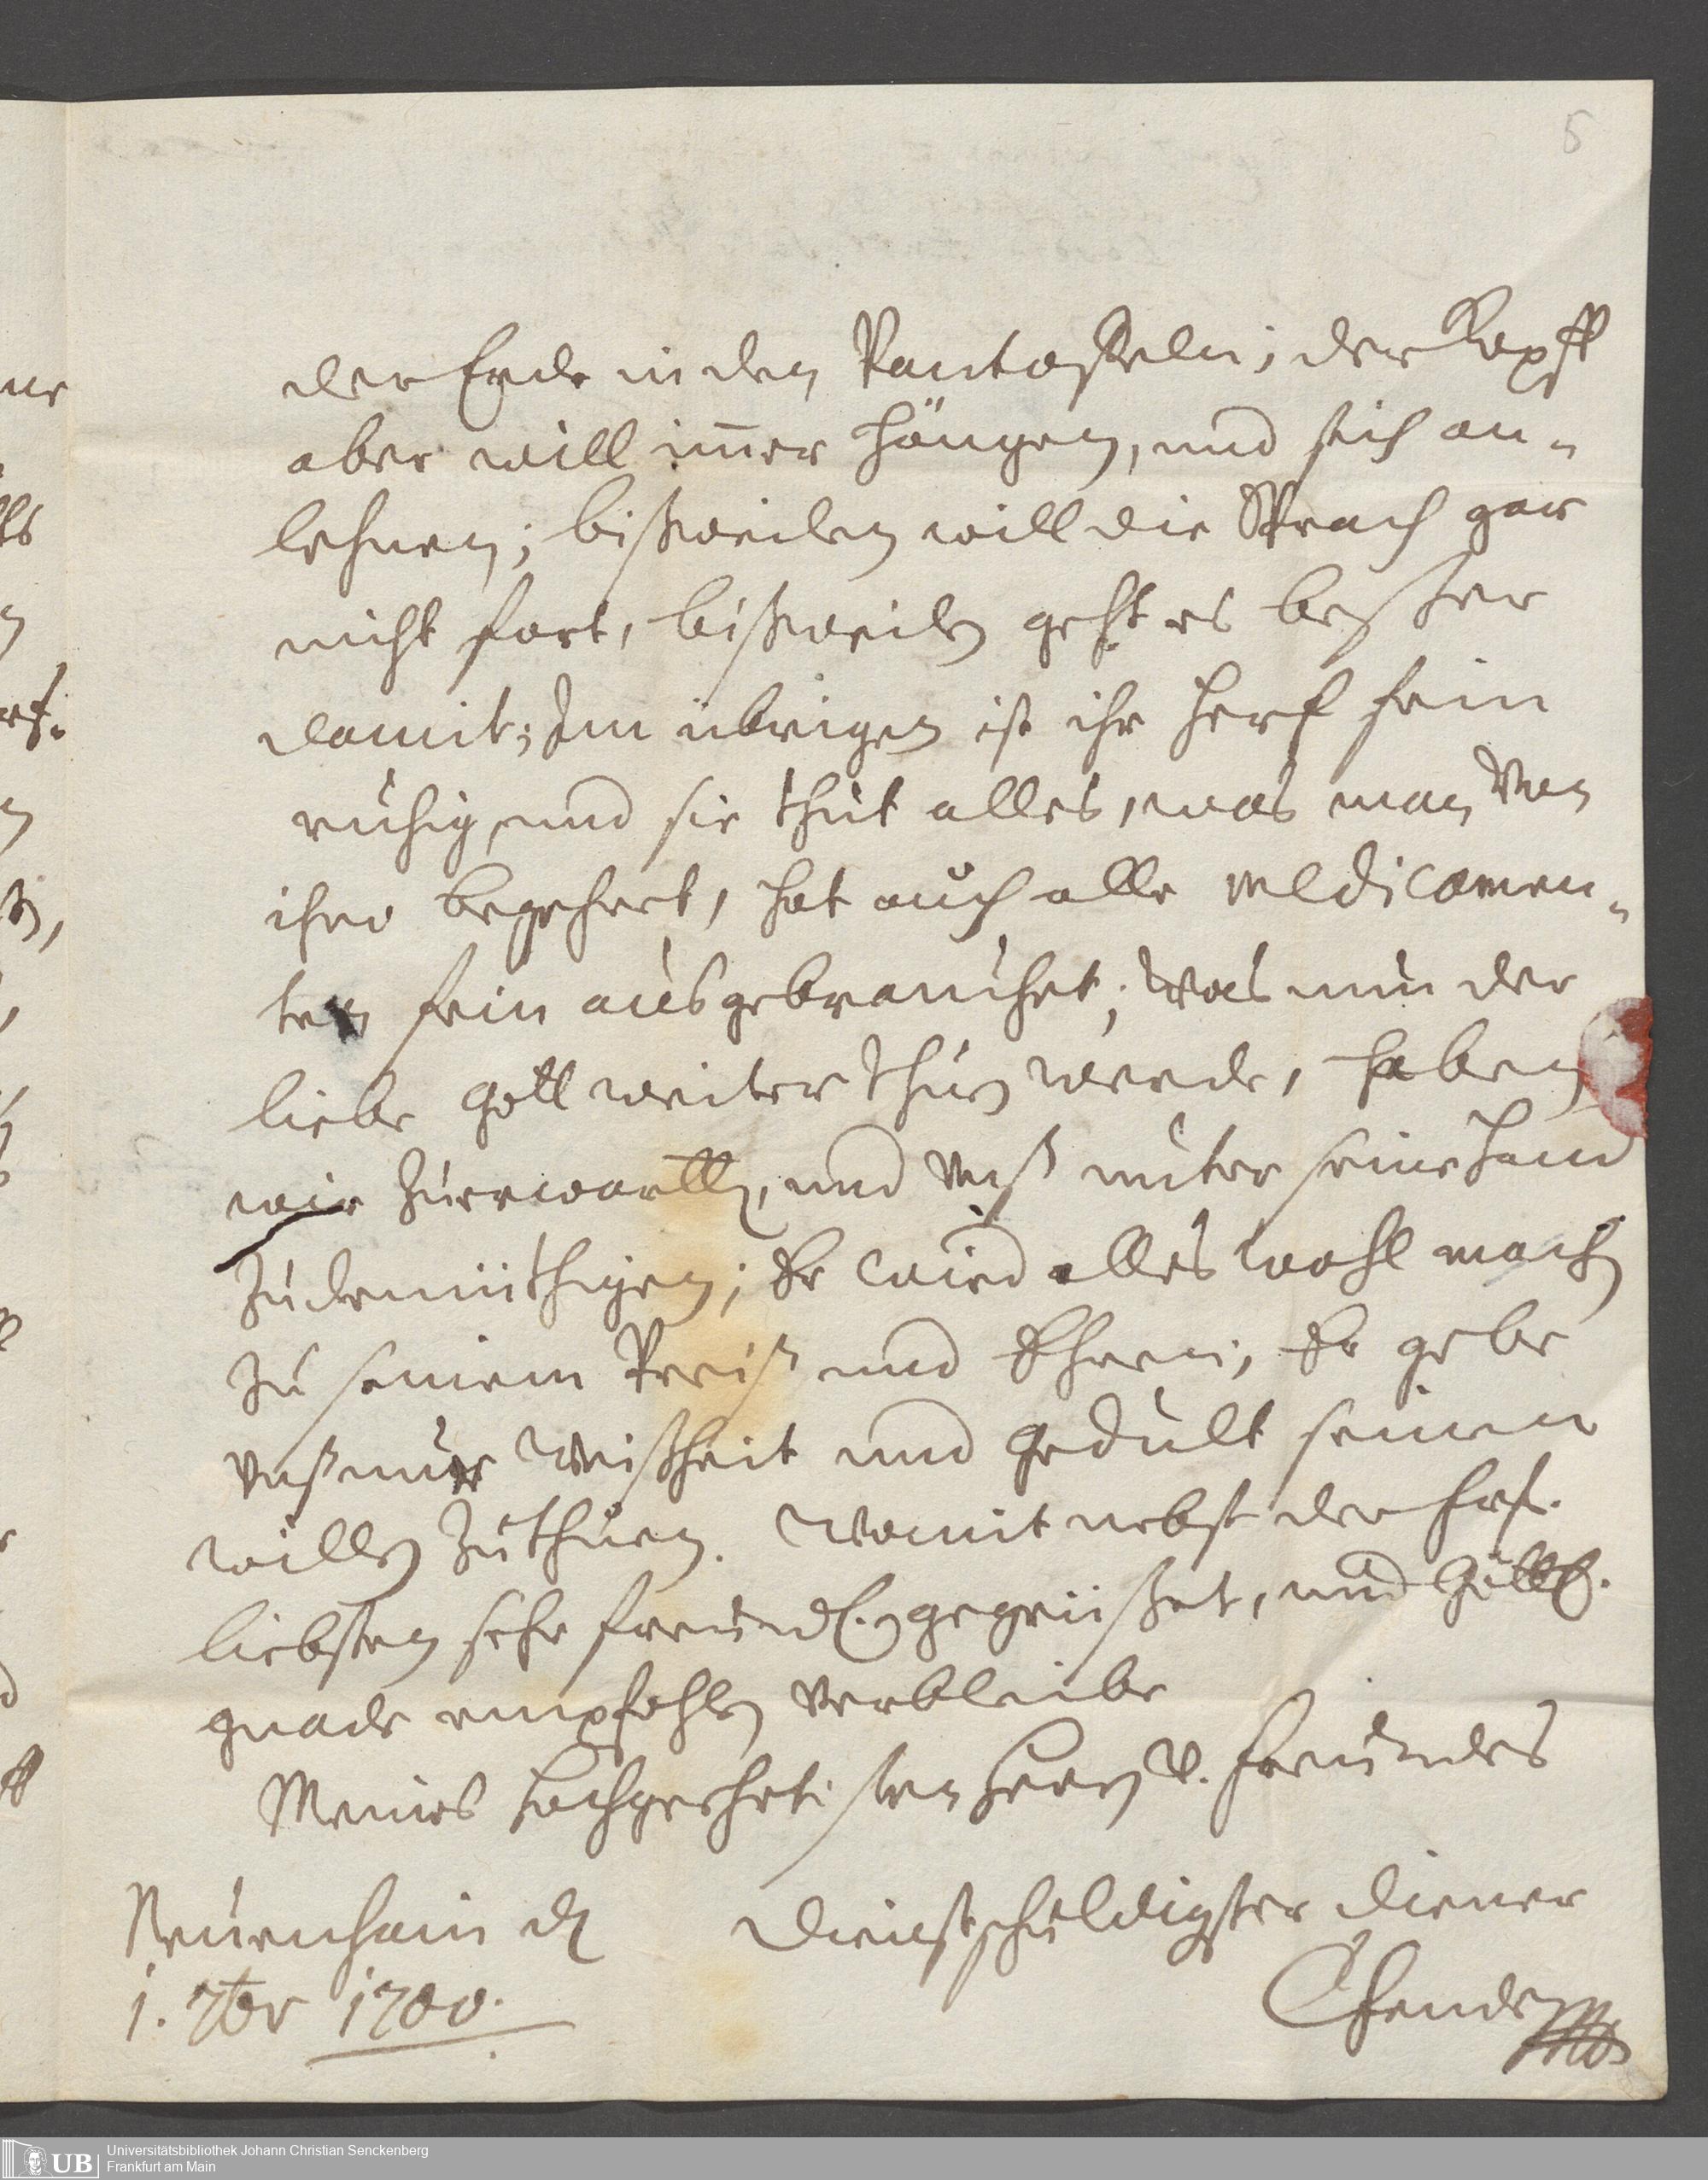 5
der Erde in den Pantoffeln; der Kopff
aber will im̄er hängen, und sich an-
lehnen; bißweilen will die Sprach gar
nicht fort, bißweilen geht es besser
damit; Im übrigen ist ihr Hertz fein
ruhig, und sie thut alles, was man von
ihro begehert, hat auch alle medicamen-
ten fein ausgebrauchet; Was nun der
liebe Gott weiter thun werde, haben
wir zu erwartten, und unß unter seine Hand
zu demüthigen; Er wird alles wohl machen
zu seinem Preiß und Ehren; Er gebe
unß nur Weißheit und Gedult seinen
willen zu thuen. Womit nebst der Hrf.
liebsten sehr freundl. gegrüßet, und Göttl.
gnade empfohlen verbleibe
Meines Hochgeehrtesten Herrn v. Freundes
Neuenhain d
Dienstschuldigster Diener
1. 7br 1700.
UB Universitätsbibliothek Johann Christian Senckenberg
Frankfurt am Main